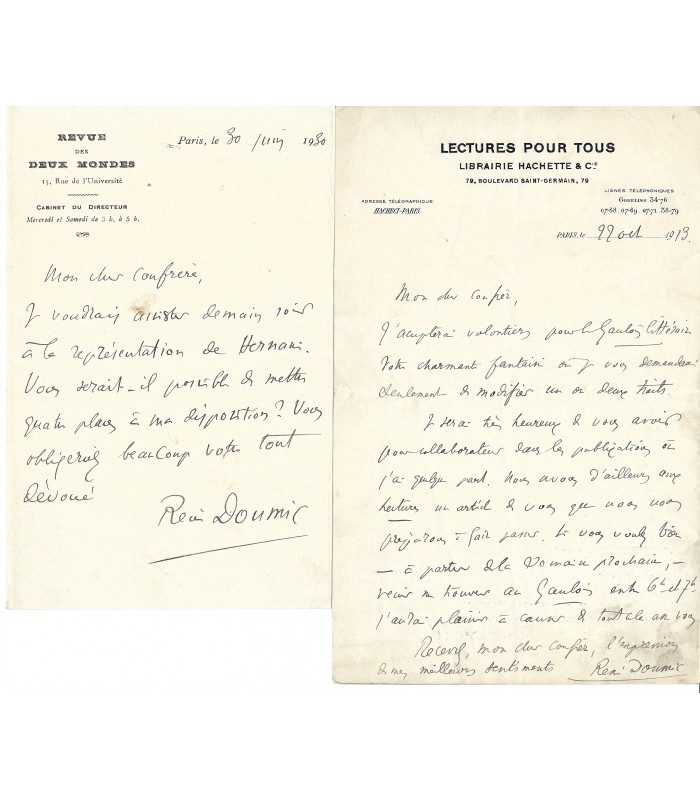 REVUE
DES
DEUX MONDES
15, Rue de l'Université
CABINET DU DIRECTEUR
Mercredi et Samedi de 3 h. à 5 h.
Paris, le 30 juin 1930
Mon cher confrère,
Je voudrais assister demain soir
à la représentation de Hernani.
Vous serait-il possible de mettre
quatre places à ma disposition? Vous
obligeriez beaucoup votre tout
dévoué
René Doumic
LECTURES POUR TOUS
LIBRAIRIE HACHETTE & Cie
79, BOULEVARD SAINT-GERMAIN, 79
ADRESSE TÉLÉGRAPHIQUE
HACHECI-PARIS
LIGNES TÉLÉPHONIQUES
GOBELINS 34-76
07-68. 07-69. 07-71. 38-79
PARIS, le oct 1913
Mon cher confrère,
J'accepterai volontiers pour le Gaulois littéraire
votre charmante fantaisie où je vous demanderai
seulement de modifier un ou deux traits.
Je serai très heureux de vous avoir
pour collaborateur dans les publications où
j'ai quelque part. Nous avons d'ailleurs aux
Lectures un article de vous que nous nous
proposons de faire passer. Si vous voulez bien
— à partir de la semaine prochaine, —
venir me trouver au Gaulois entre 6h et 7h
j'aurai plaisir à causer de tout cela avec vous
Recevez, mon cher confrère, l'expression
de mes meilleurs sentiments René Doumic